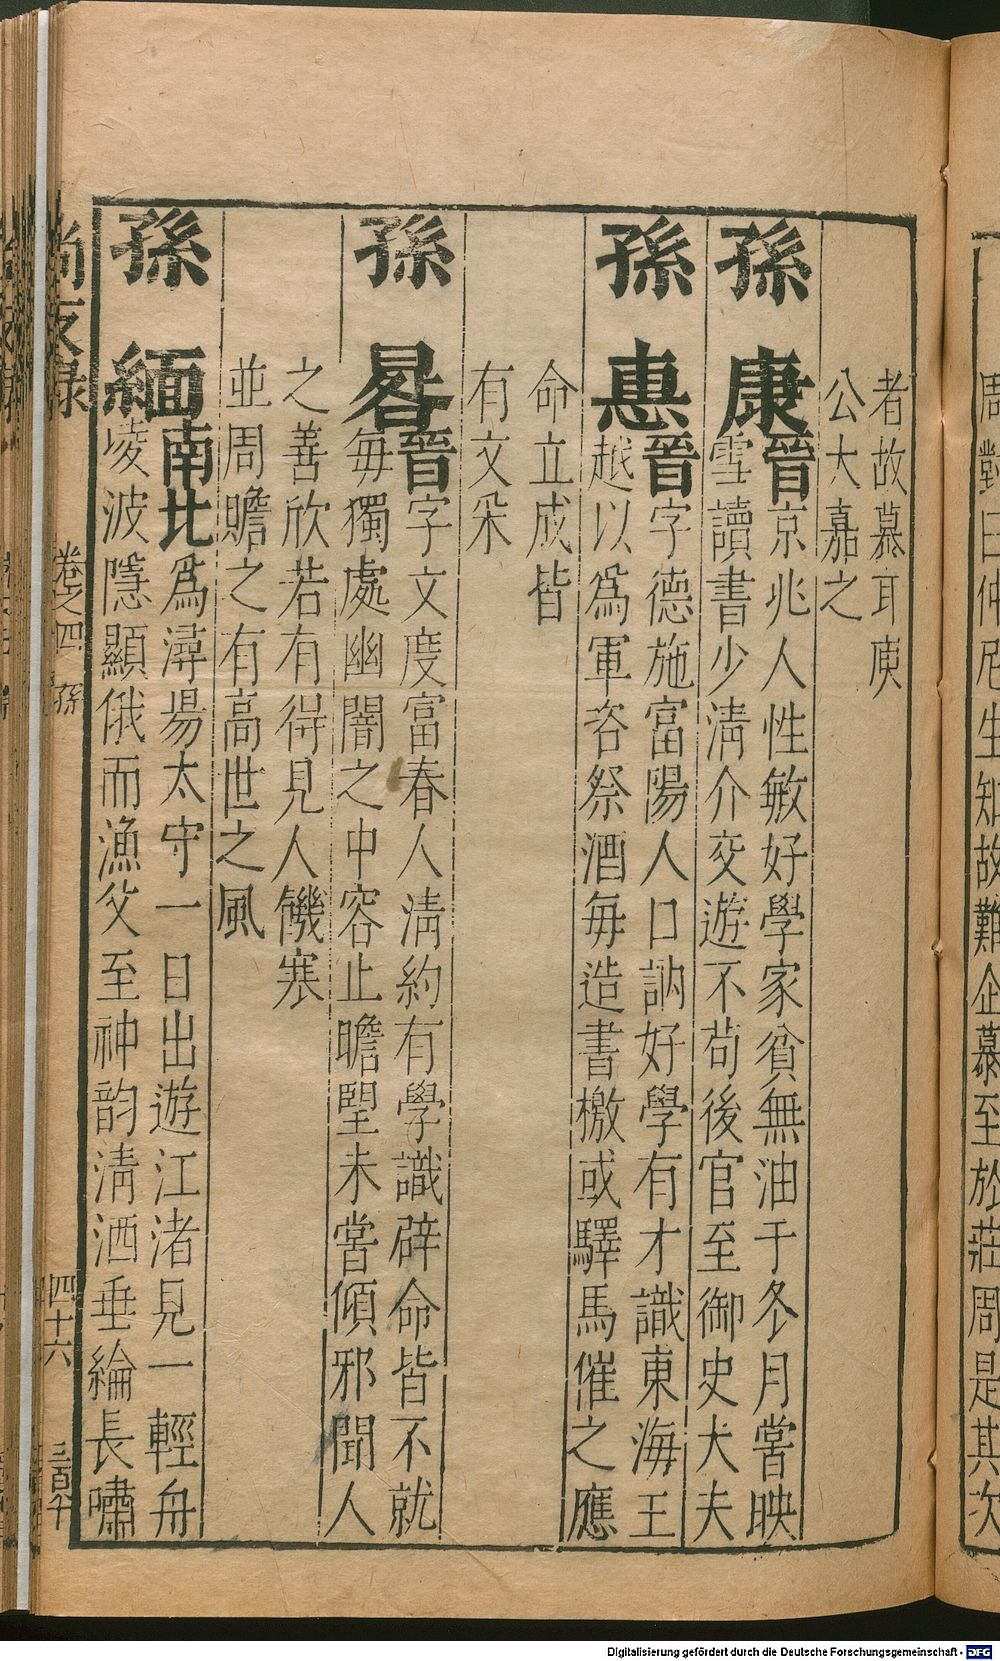 周對曰仲尼生知故難企慕至於莊周是其次
者故慕耳庾
公大嘉之
孫康晉京兆人性敏好學家貧無油于冬月嘗映
雪讀書少淸介交遊不苟後官至御史大夫
孫惠晉字德施富陽人口訥好學有才識東海王
越以爲軍咨祭酒每造書檄或驛馬催之應
命立成皆
有文采
孫晷晉字文度富春人淸約有學識辟命皆不就
每獨處幽闇之中容止瞻望未嘗傾邪聞人
之善欣若有得見人饑寒
並周贍之有高世之風
孫緬南北爲潯陽太守一日出遊江渚見一輕舟
凌波隱顯俄而漁父至神韵淸洒垂綸長嘯
尙友錄 卷之四 孫 四十六
Digitalisierung gefördert durch die Deutsche Forschungsgemeinschaft - DFG